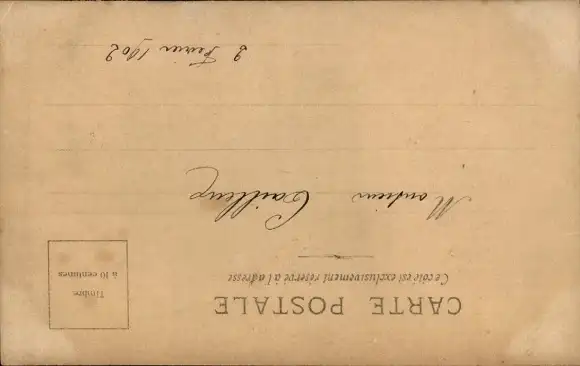 CARTE POSTALE
Ce coté est exclusivement réservé à l'adresse
Timbre
à 10 centimes
Monsieur
2 Fevrier 1902